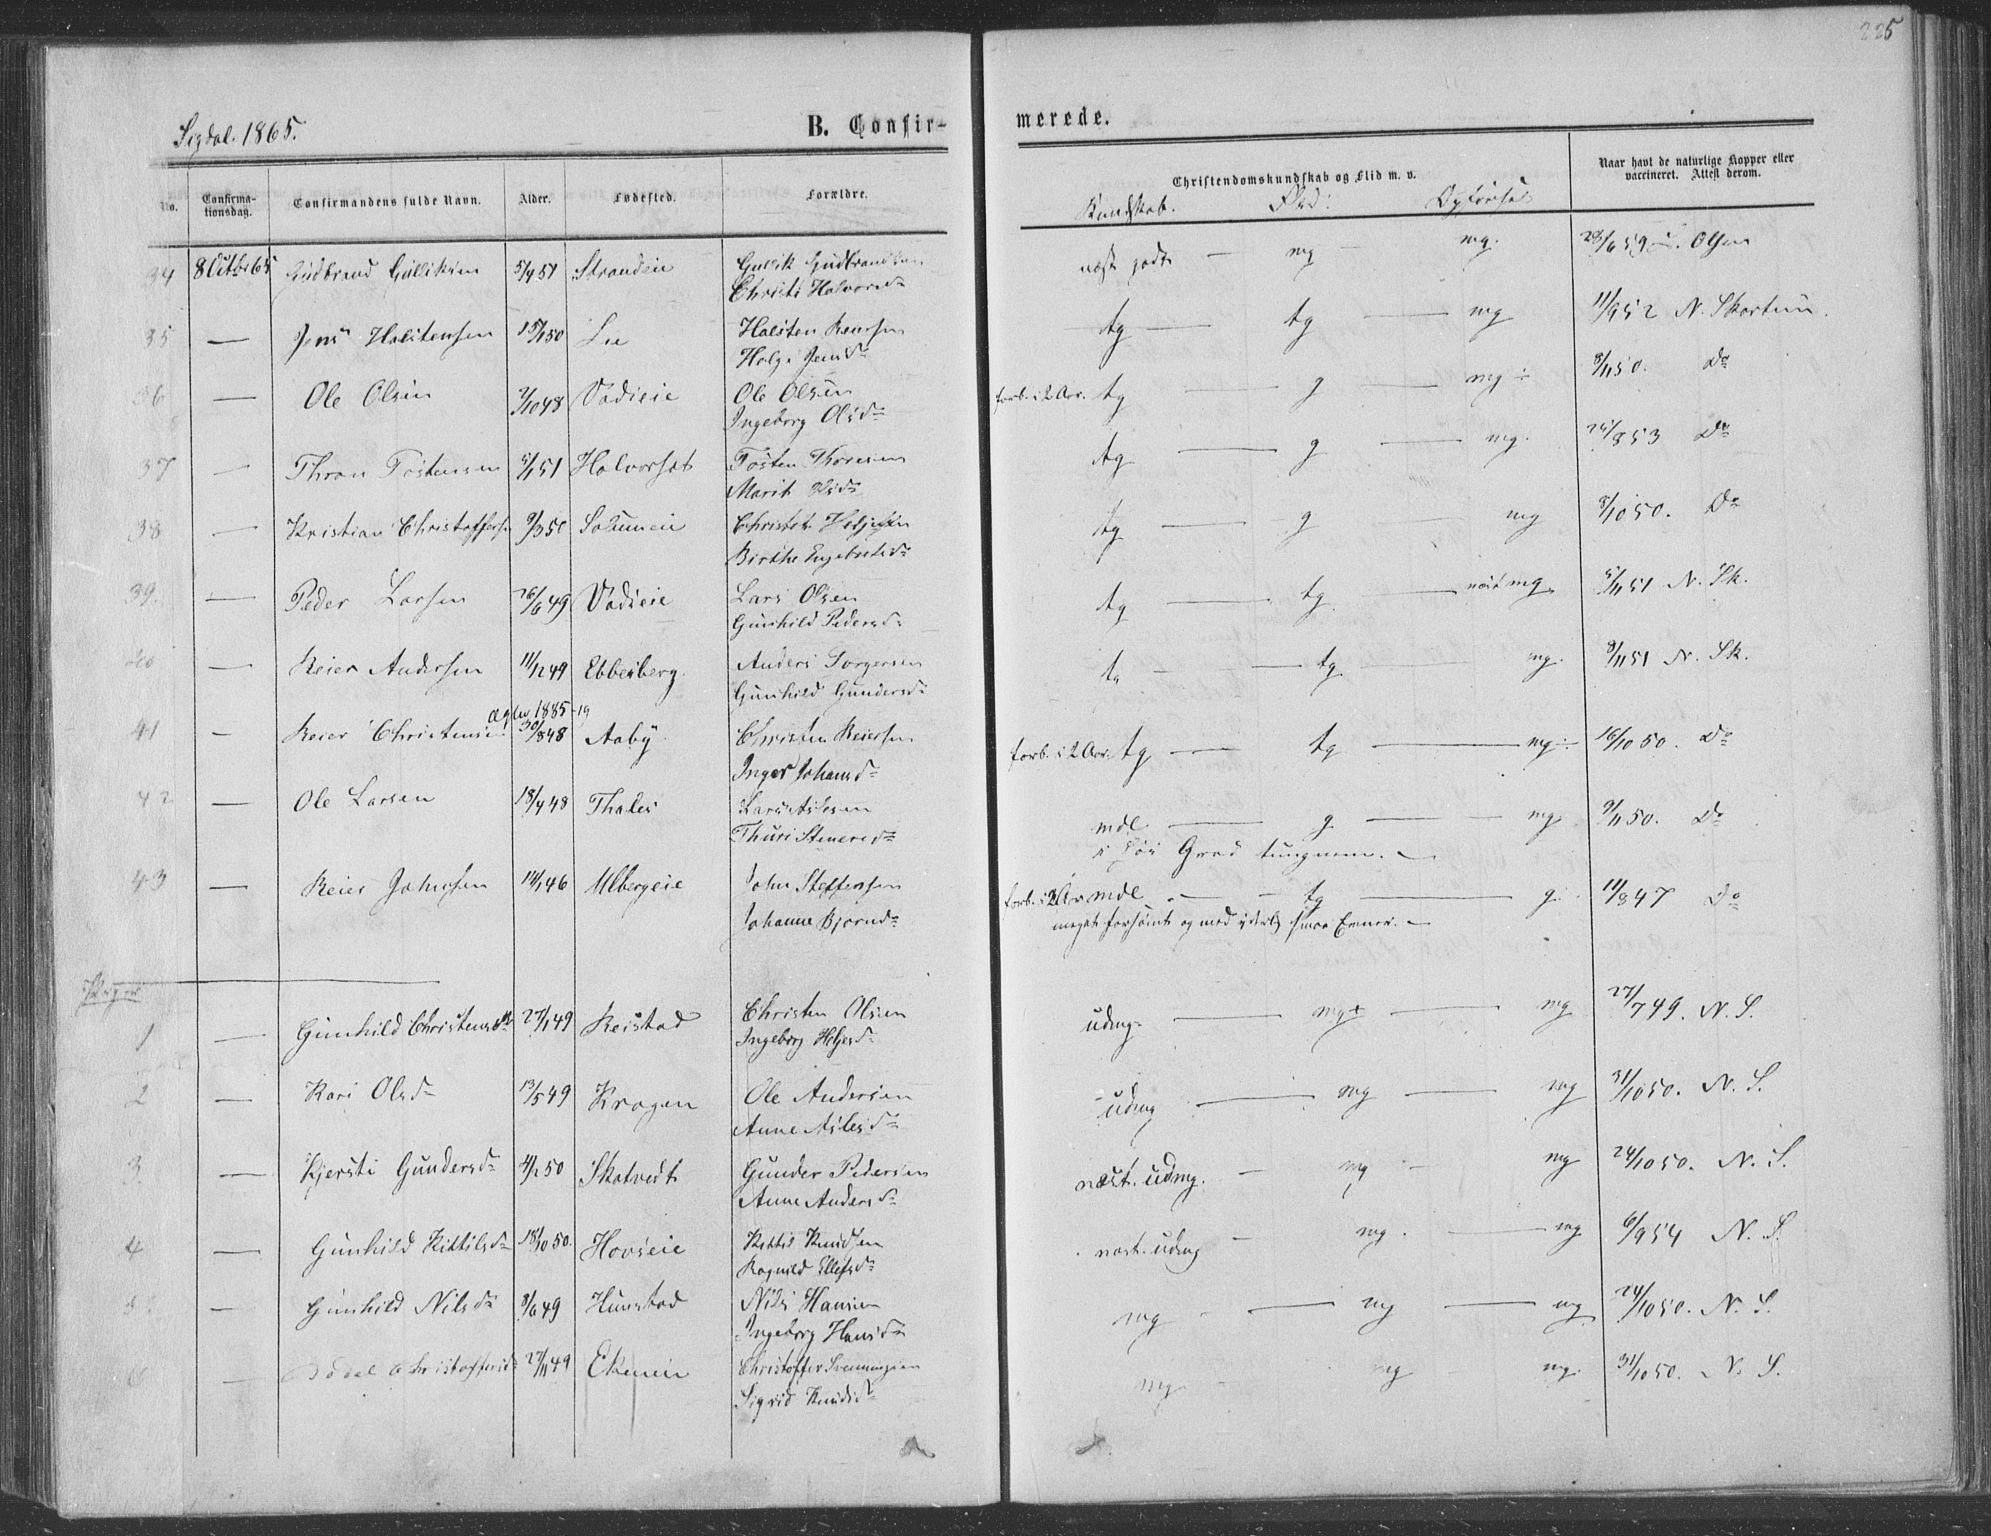 225
Sigdal. 1865.
B. Confir-
merede.
No.
Confirma-
tionsdag.
Confirmandens fulde Navn.
Alder.
Fødested.
Forældre.
Christendomskundskab og Flid m. v.
Naar havt de naturlige Kopper eller
vaccineret. Attest derom.
Kundskab. Flid. Opførsel
34 8 Octbr 65 Gudbrand Gulliksen 5/4 51 Strandeie Gullik Gudbrandsen næst godt — mg — mg. 23/6 59 Olsen
Christi Halvorsd.
35 — Jens Halstensen 15/1 50 Lie Halsten Reiersen tg — tg — mg 11/9 52 N. Skartum.
Helge Jensd.
36 — Ole Olsen 2/10 48 Vadseie Ole Olsen forb. i 2 Aar. tg — g — mg ÷ 8/11 50. Do
Ingeborg Olsd.
37 — Thron Tostensen 5/1 51 Halvorset Tosten Thoresen tg — g — mg. 25/8 53 Do
Marit Olsd.
38 — Kristian Christoffersen 9/3 50 Solumeie Christof Helgesen tg — g — mg 8/10 50. Do
Birthe Engebretsd.
39. — Peder Larsen 26/6 49 Vadseie Lars Olsen tg — tg. — næst mg. 5/11 51 N. Sk.
Gunhild Pedersd.
40 — Reier Andersen 11/12 49 Ebbesberg. Anders Torgersen tg — tg. mg. 9/11 51 N. Sk.
Gunhild Gundersd.
1885-19
41 — Reier Christensen 30/8 48 Aaby Christen Reiersen forb. i 2 Aar. tg — tg — mg ÷ 16/10 50. Do
Inger Johansd.
42 — Ole Larsen 18/4 48 Thales Lars Aslesen mdl. — g — mg 9/11 50. Do
Thuri Steners d.
i høi Grad tungnem. —
43 — Reier Johnsen 14/1 46 Ulbergeie John Steffensen forb. i 2 Aar mdl. — tg — g. 11/8 47 Do
Johanne Bjørnsd.
meget forsømt og med yderlig smaa Evner. —
Piger
1 — Gunhild Christensd. 27/1 49 Reistad Christen Olsen udmg. — mg+ — mg 27/7 49. N. S.
Ingeborg Helgesd.
2 — Kari Olsd. 13/5 49 Kragen Ole Andersen udmg — mg — mg 31/10 50. N. S.
Anne Aslesd.
3. — Kjersti Gundersd. 4/2 50 Skatvedt Gunder Pedersen næst. udmg. — mg — mg 24/10 50. N. S.
Anne Andersd.
4 — Gunhild Kittilsd. 18/10 50. Hovseie Kittil Knudsen næst. udmg — mg. — mg 6/9 54 N. S.
Ragnild Ellefsd.
5 — Gunhild Nilsd. 8/6 49 Hunstad Nils Hansen mg — mg — mg 24/10 50. N. S.
Ingeborg Hansd.
6 — Christoffersd. 27/11 49 Ekeneie Christoffer Svenningsen mg — mg mg. 31/10 50. N. S.
Sigrid Knudsd.